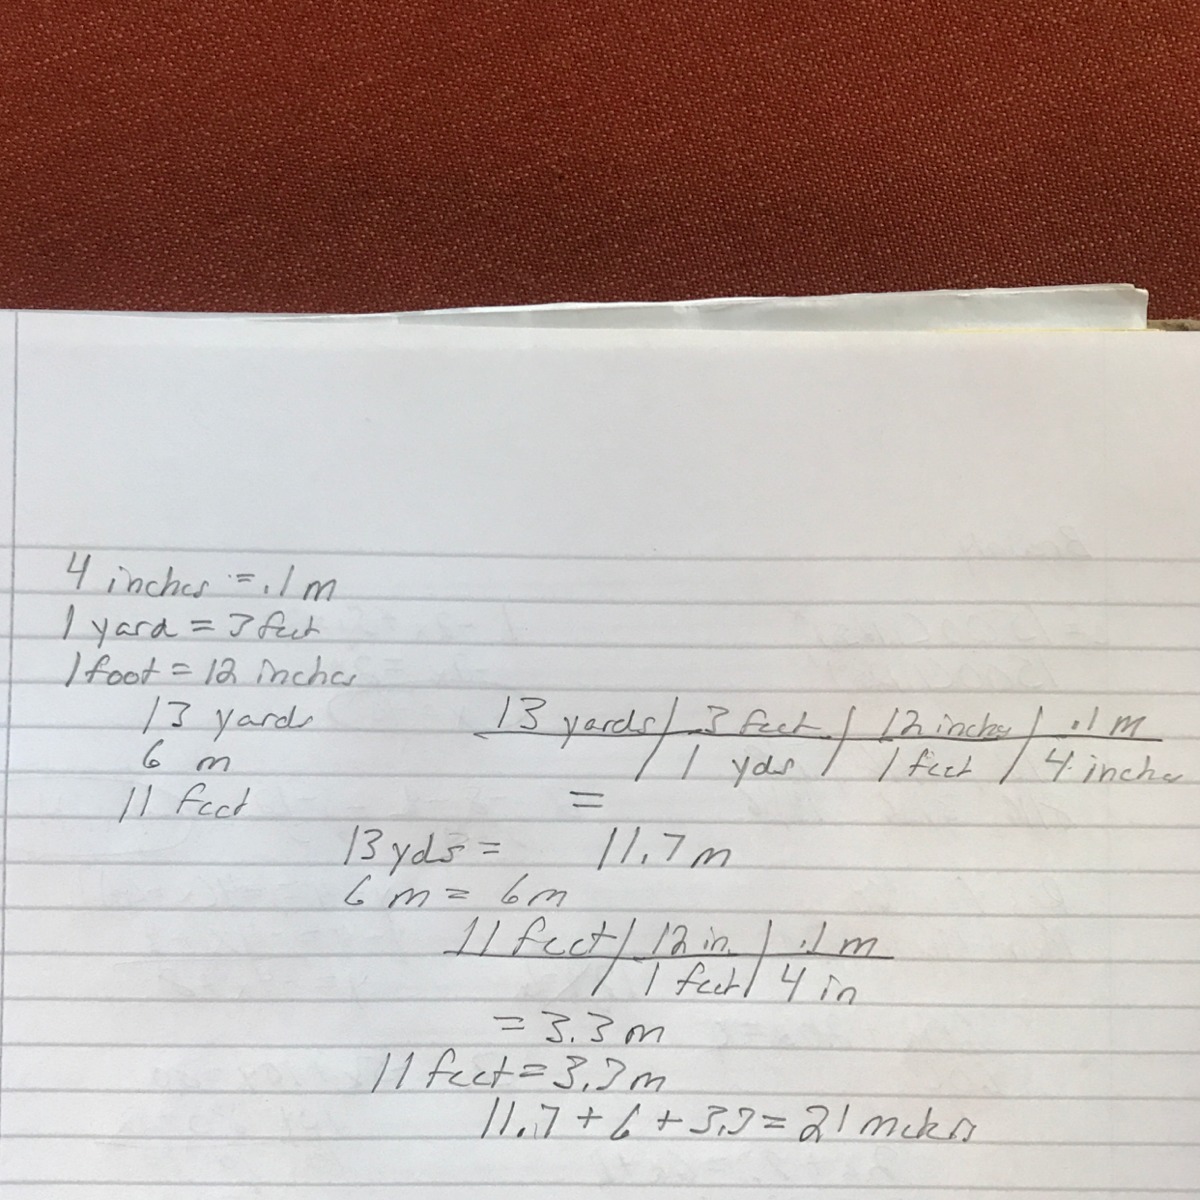 4 inches = .1 m
1 yard = 3 feet
1 foot = 12 inches
13 yards
6 m
11 feet
13 yards / 3 feet / 12 inches / .1 m
/ 1 yds / 1 feet / 4 inche
=
13 yds = 11.7 m
6 m = 6m
11 feet / 12 in. / .1 m
/ 1 feet / 4 in
= 3.3 m
11 feet = 3.3 m
11.7 + 6 + 3.3 = 21 meters